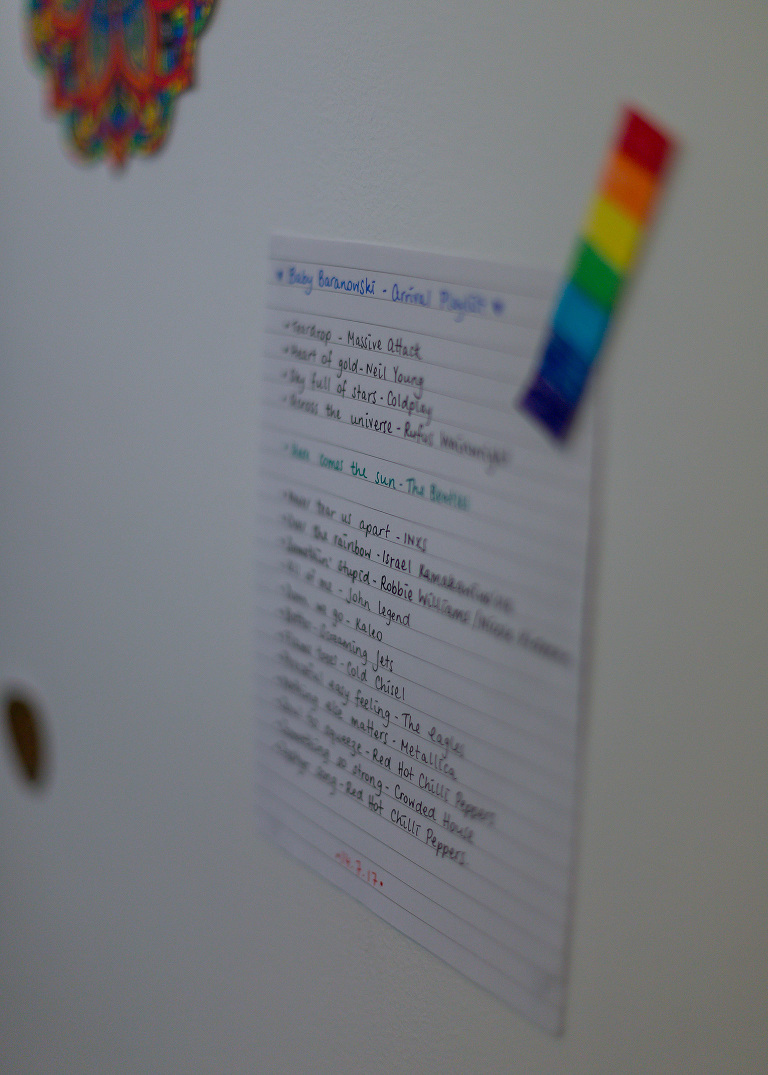 Baby Baranowski - Arrival Playlist
Teardrop - Massive Attack
Heart of gold - Neil Young
Sky full of stars - Coldplay
Across the universe - Rufus Wainwright
Here comes the sun - The Beatles
Never tear us apart - INXS
Over the rainbow - Israel
Somethin' stupid - Robbie Williams /
All of me - John legend
go - Kaleo
- Screaming Jets
- Cold Chisel
Peaceful easy feeling - The eagles
Nothing else matters - Metallica
squeeze - Red Hot Chilli Peppers
Something so strong - Crowded House
song - Red Hot Chilli Peppers
.7.17